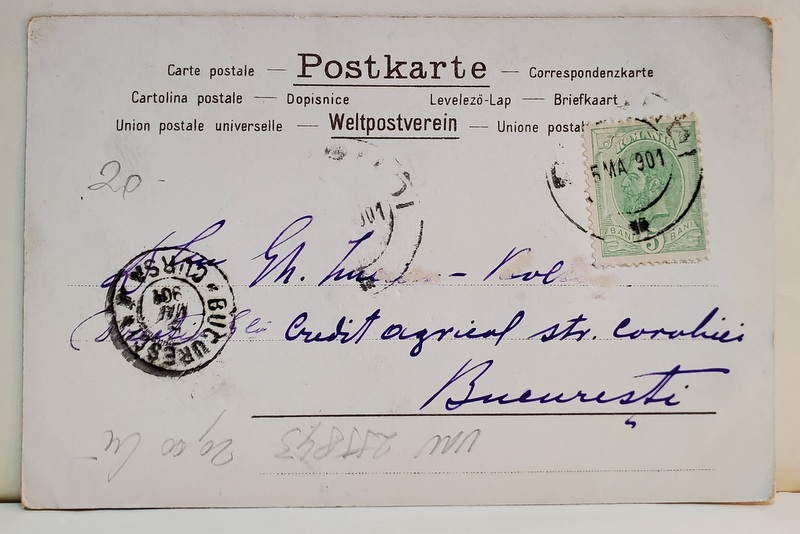 Carte postale — Postkarte — Correspondenzkarte
Cartolina postale — Dopisnice Levelező-Lap — Briefkaart
Union postale universelle — Weltpostverein — Unione postal
ROMANIA
5 MA 901
BANI 5 BANI
20-
901
Gh.
BUCURESCI
CURSA
MAI
901
Credit agricol str. corabiei
București
20,00